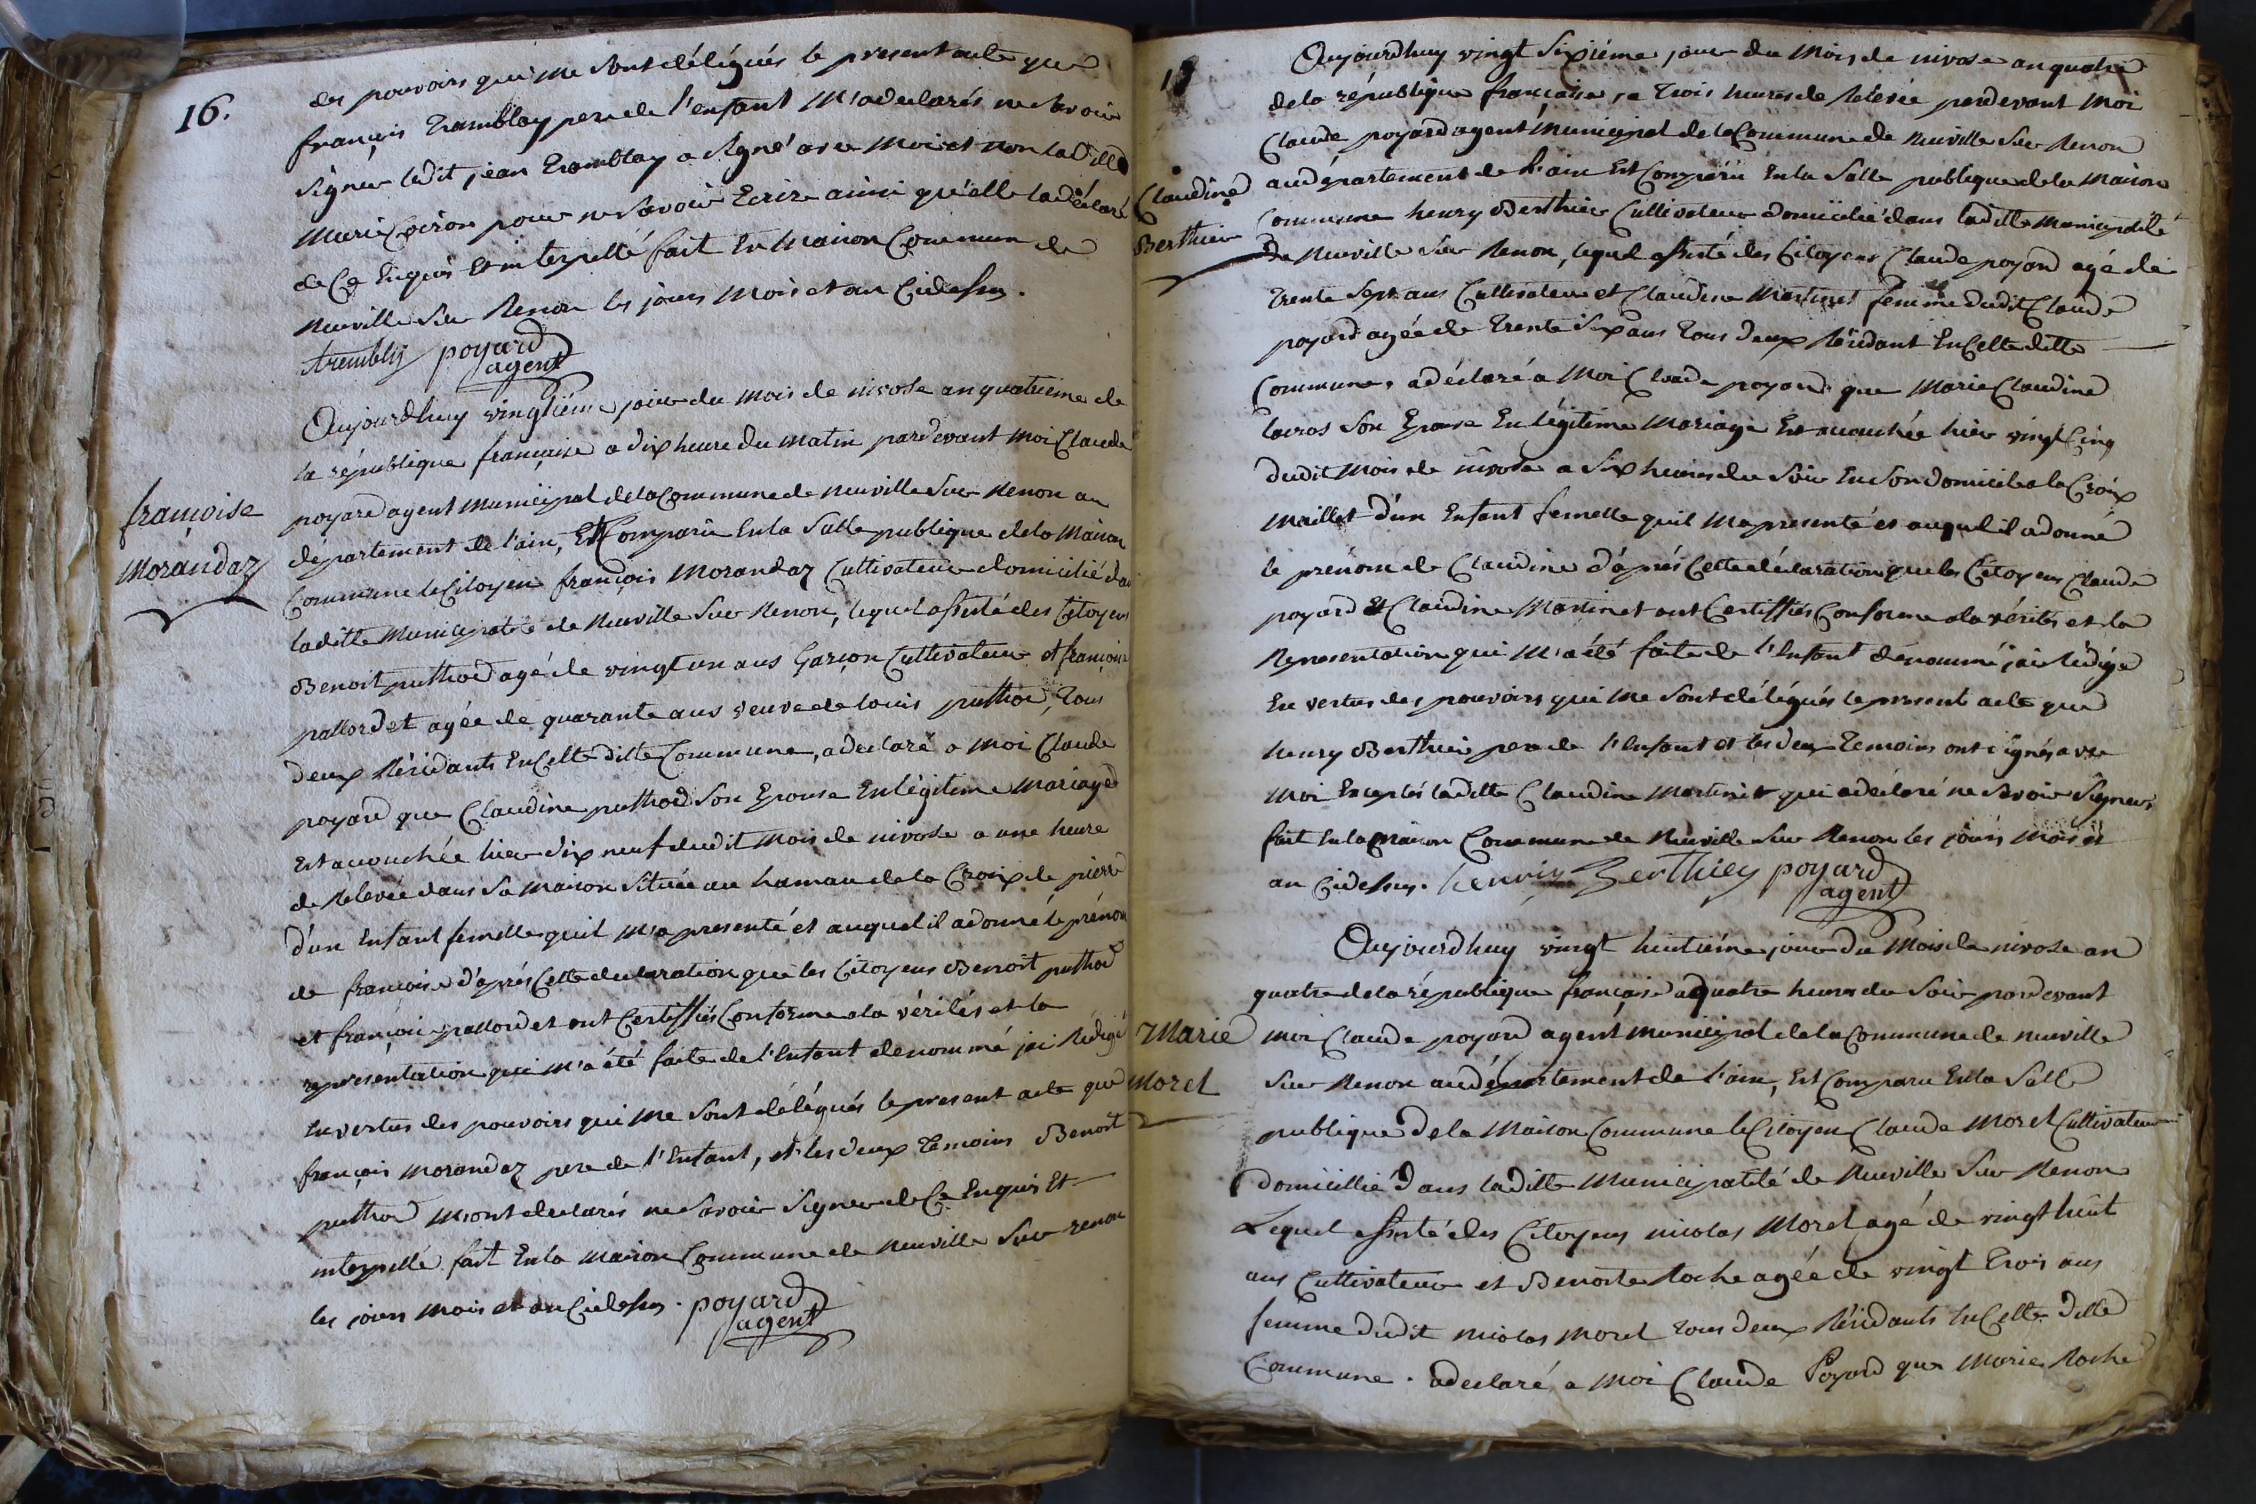 16.
des pouvoirs qui me sont délégués le present acte que
françois Tramblay pere de l'enfant M'a declarés ne savoir
signer ledit jean Tramblay a signé avec moi et non laditte
Marie pour ne savoir Ecrire ainsi qu'elle la déclaré
de Ce Enquis Et interpellé fait En maison Commun de
Neuville sur Renon les jours mois et an Cidessus.
trembly poyard
agent
françoise
Morandaz
Aujourdhuy vingtiéme jour du mois de nivose an quatrieme de
la république française a dix heure du matin pardevant moi Claude
poyard agent municipal de la Commune de neuville sur Renon au
departement de l'ain, Est Comparu En la salle publique de la maison
Commune le Citoyen françois Morandaz Cultivateur domicilié dans
laditte Municipalité de Neuville sur Renon, lequel assisté des Citoyens
Benoit puthod agé de vingt un ans Garçon Cultivateur et françoise
pallordet agée de quarante ans veuve de louis puthod, Tous
deux Résidants En Cette ditte Commune, a declaré a moi Claude
poyard que Claudine puthod son Epouse En légitime Mariage
Est accouchée hier dix neuf dudit mois de nivose a une heure
de Relevée dans sa maison située au hamau de la Croix de pierre
d'un Enfant femelle quil m'a presenté et auquel il a donné le prénom
de françoise d'après Cette declaration que les Citoyens Benoit puthod
et françoise pallordet ont Certiffiés Conforme a la vérités et la
representation qui m'a été faite de l'Enfant denommé jai Rédigé
En vertus des pouvoirs qui me sont délégués le present acte que
françois Morandaz pere de l'Enfant, et les deux Temoins Benoit
puthod m'ont declarés ne savoir signer de Ce Enquis Et
interpellé fait En la maison Commune de neuville sur renon
les jours mois et an Cidessus. poyard
agent
Claudine
Berthier
Aujourdhuy vingt sixiéme jour du mois de nivose an quatre
de la république française, a Trois heures de Relevée pardevant moi
Claude poyard agent municipal de la Commune de Neuville sur Renon
au département de l'ain Est Comparu En la salle publique de la maison
Commune henry Berthier Cultivateur domicilié dans laditte municipalité
de Neuville sur Renon, lequel assisté des Citoyens Claude poyard agé de
Trente sept ans Cultivateur et Claudine Martinet femme dudit Claude
poyard agée de Trente six ans Tous deux Résidant En Cette ditte
Commune, a déclaré a moi Claude poyard que Marie Claudine
lacros son Epouse En légitime Mariage Est accouchée hier vingt Cinq
dudit mois de nivose a six heures du soir En son domicile a la Croix
Maillet d'un Enfant femelle quil m'a presenté et auquel il a donné
le prénom de Claudine d'après Cette déclaration que les Citoyens Claude
poyard et Claudine Martinet ont Certiffiés Conforme a la vérités et la
Representation qui m'a été faite de l'Enfant dénommé jai Rédigé
En vertus des pouvoirs qui me sont délégués le present acte que
henry Berthier pere de l'enfant et les deux Temoins ont signés avec
moi Exceptés laditte Claudine Martinet qui a déclaré ne savoir signer,
fait En la maison Commune de Neuville sur Renon les jours mois et
an Cidessus. henriy Berthiey poyard
agent
Marie
Morel
Aujourdhuy vingt huitiéme jour du mois de nivose an
quatre de la république française a quatre heures du soir pardevant
moi Claude poyard agent municipal de la Commune de neuville
sur Renon au département de l'ain, Est Comparu En la salle
publique de la maison Commune le Citoyen Claude Morel Cultivateur
domicillié dans laditte Municipalité de Neuville sur Renon
Lequel assisté des Citoyens nicolas Morel agé de vingt huit
ans Cultivateur et Benoite Roche agée de vingt Trois ans
femme dudit nicolas Morel Tous deux Résidants En Cette ditte
Commune. a declaré, a moi Claude Poyard que Marie Roche